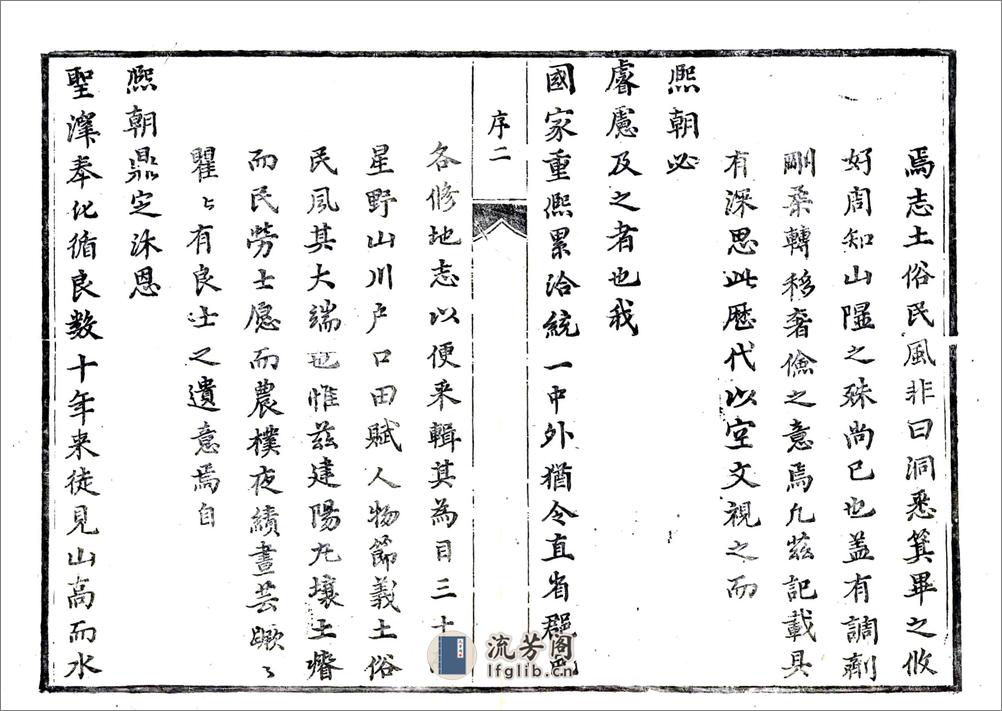 焉志土俗民風非曰洞悉箕畢之攸
好周知山隰之殊尚已也盖有調劑
剛柔轉移奢儉之意焉凢茲記載具
有深思此歷代以空文視之而
熈朝必
睿慮及之者也我
國家重熈累洽統一中外猶令直省郡邑
序二
各修地志以便来輯其為目三十
星野山川户口田賦人物節義土俗
民風其大端也惟茲建陽九壤土瘠
而民勞士愿而農樸夜績晝芸蹶〻
瞿〻有良士之遺意焉自
熈朝鼎定沐恩
聖澤奉化循良数十年来徒見山高而水
流芳阁
lfglib.cn